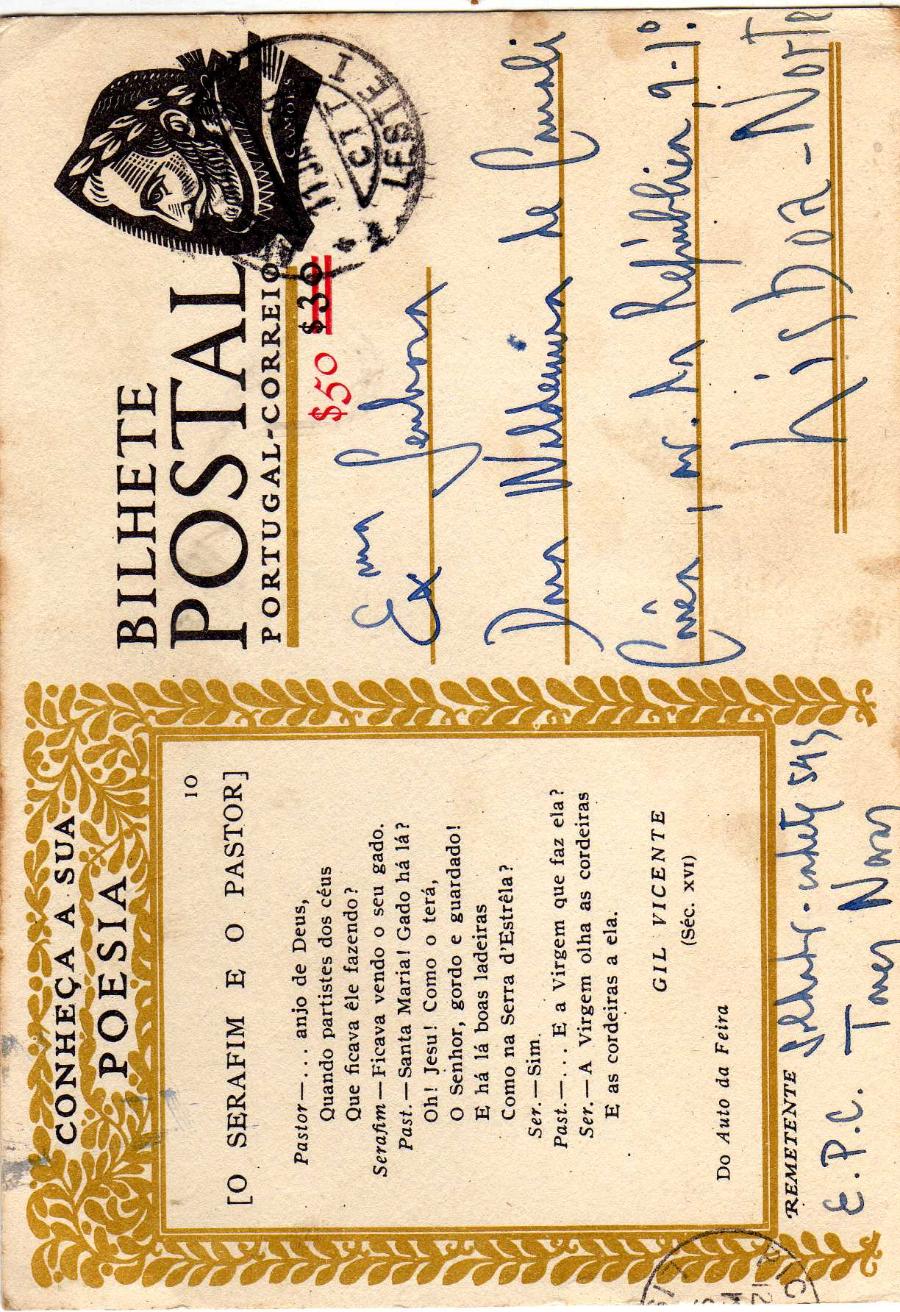 CONHEÇA A SUA
POESIA
10
[O SERAFIM E O PASTOR]
Pastor—... anjo de Deus,
Quando partistes dos céus
Que ficava êle fazendo?
Serafim—Ficava vendo o seu gado.
Past.—Santa Maria! Gado há lá?
Oh! Jesu! Como o terá,
O Senhor, gordo e guardado!
E há lá boas ladeiras
Como na Serra d'Estrêla?
Ser.—Sim.
Past.—... E a Virgem que faz ela?
Ser.—A Virgem olha as cordeiras
E as cordeiras a ela.
GIL VICENTE
(Séc. XVI)
Do Auto da Feira
REMETENTE
E. P. C. Torres Novas
BILHETE
POSTAL
PORTUGAL-CORREIO
$50 $30
CAMÕES
CTT
LESTE 1
Exma Senhora
Dona de
av. da República, 9-1º
Lisboa-Norte